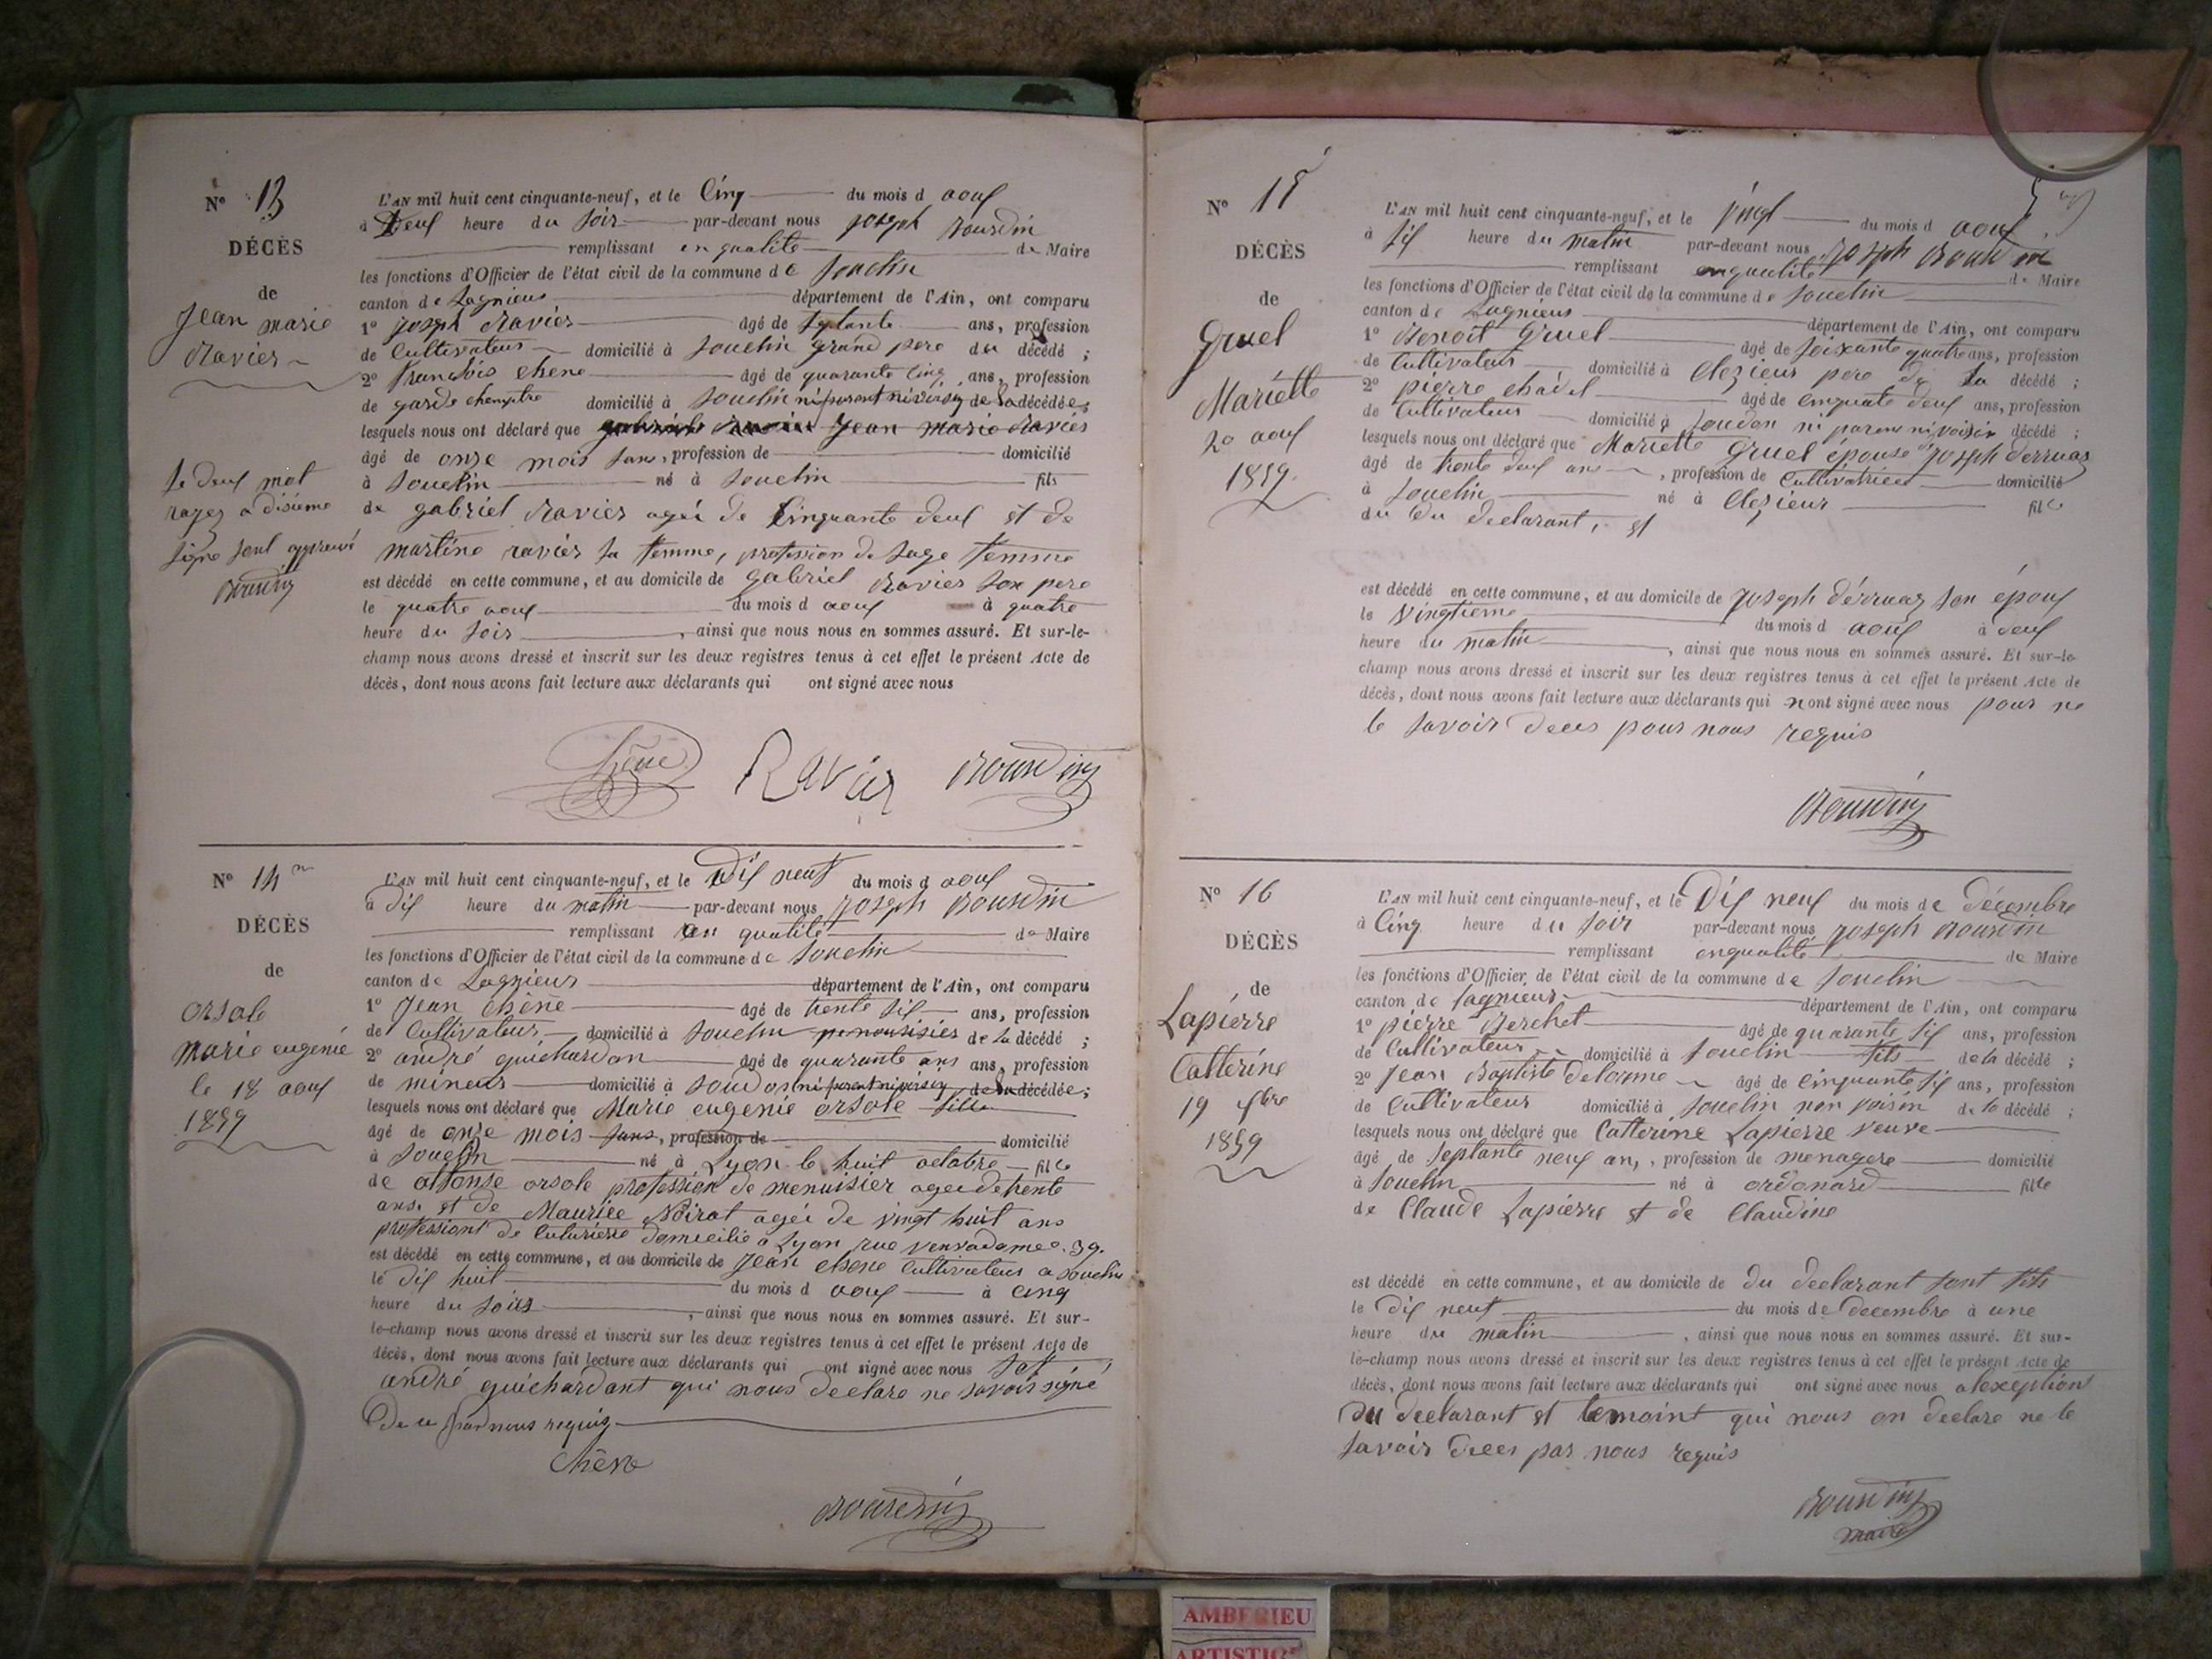 N° 13
DÉCÈS
de
Jean marie
Ravier
le deuf mot
rayez a disieme
ligne sont approuvé
Bourdin
L'AN mil huit cent cinquante-neuf, et le Cinq du mois d aouf
à Neuf heure du soir par-devant nous joseph Bourdin
remplissant en qualite de Maire
les fonctions d'Officier de l'état civil de la commune de Souclin
canton de Lagnieus département de l'Ain, ont comparu
1° joseph Ravier âgé de septante ans, profession
de Cultivateur domicilié à Souclin grand pere du décédé ;
2° francois chene âgé de quarante cinq ans, profession
de garde chempetre domicilié à Souclin ni parent ni voisin de la décédée ;
lesquels nous ont déclaré que Jean marie Ravier
âgé de onze mois sans, profession de domicilié
à Souclin né à Souclin fils
de gabriel Ravier ageé de Cinquante deuf et de
martine ravier sa femme, profession de sage femme
est décédé en cette commune, et au domicile de gabriel Ravier son pere
le quatre aouf du mois d aouf à quatre
heure du soir, ainsi que nous nous en sommes assuré. Et sur-le-
champ nous avons dressé et inscrit sur les deux registres tenus à cet effet le présent Acte de
décès, dont nous avons fait lecture aux déclarants qui ont signé avec nous
Chene Ravier Bourdin
N° 14
DÉCÈS
de
orsole
marie eugenie
le 18 aouf
1859
L'AN mil huit cent cinquante-neuf, et le Dif neuf du mois d aouf
à dif heure du matin par-devant nous joseph Bourdin
remplissant en qualité de Maire
les fonctions d'Officier de l'état civil de la commune de Souclin
canton de Lagnieus département de l'Ain, ont comparu
1° Jean Chene âgé de trente sif ans, profession
de Cultivateur domicilié à Souclin de la décédé ;
2° andré guichardon âgé de quarante ans ans, profession
de mineur domicilié à Soudon ni parent ni voisin de la décédée ;
lesquels nous ont déclaré que Marie eugenie orsole fille
âgé de onze mois sans, profession de domicilié
à Souclin né à Lyon le huit octobre fille
de alfonse orsole profession de menuisier ageé de trente
ans et de Mauriee Noirot ageé de vingt huit ans
professiont de Cuturiere domicilié a Lyon rue 39.
est décédé en cette commune, et au domicile de Jean chene Cultivateur a Souclin
le dif huit du mois d aouf à cinq
heure du soirs, ainsi que nous nous en sommes assuré. Et sur-
le-champ nous avons dressé et inscrit sur les deux registres tenus à cet effet le présent Acte de
décès, dont nous avons fait lecture aux déclarants qui ont signé avec nous sof
andré guichardant qui nous declare ne savoir signé
De ce par nous requis
Chêne
Bourdin
N° 15
DÉCÈS
de
Gruel
Mariette
20 aouf
1859.
L'AN mil huit cent cinquante-neuf, et le vingt du mois d aouf
à sif heure du matin par-devant nous joseph Bourdin
remplissant enqualité de Maire
les fonctions d'Officier de l'état civil de la commune de Souclin
canton de Lagnieus département de l'Ain, ont comparu
1° Benoit Gruel âgé de soixante quatre ans, profession
de Cultivateur domicilié à Clezieus pere de la décédé ;
2° pierre chadel âgé de cinquate deuf ans, profession
de Cultivateur domicilié à Soudon ni parent ni voisin décédé ;
lesquels nous ont déclaré que Mariette Gruel épouse de joseph derruaz
âgé de trente deuf ans, profession de Cultivatrice domicilié
à Souclin né à Clezieus fille
du du declarant, et
est décédé en cette commune, et au domicile de joseph dérruaz son épouf
le vingtieme du mois d aouf à deuf
heure du matin, ainsi que nous nous en sommes assuré. Et sur-le-
champ nous avons dressé et inscrit sur les deux registres tenus à cet effet le présent Acte de
décès, dont nous avons fait lecture aux déclarants qui n ont signé avec nous pour ne
le savoir dece pour nous requis
Bourdin
N° 16
DÉCÈS
de
Lapierre
Catterine
19 xbre
1859
L'AN mil huit cent cinquante-neuf, et le Dif neuf du mois de décembre
à Cinq heure du soir par-devant nous joseph Bourdin
remplissant enqualité de Maire
les fonctions d'Officier de l'état civil de la commune de Souclin
canton de Lagnieus département de l'Ain, ont comparu
1° pierre Berchet âgé de quarante sif ans, profession
de Cultivateur domicilié à Souclin fils de la décédé ;
2° Jean Baptiste Delorme âgé de cinquante sif ans, profession
de Cultivateur domicilié à Souclin non voisin de la décédé ;
lesquels nous ont déclaré que Catterine Lapierre veuve
âgé de septante neuf an, profession de menagere domicilié
à Souclin né à ordonard fille
de Claude Lapierre et de Claudine
est décédé en cette commune, et au domicile de du declarant sont fils
le dif neuf du mois de decembre à une
heure du matin, ainsi que nous nous en sommes assuré. Et sur-
le-champ nous avons dressé et inscrit sur les deux registres tenus à cet effet le présent Acte de
décès, dont nous avons fait lecture aux déclarants qui ont signé avec nous alexeption
du declarant et temoint qui nous on declare ne le
savoir dece par nous requis
Bourdin
maire
AMBERIEU
ARTISTIQUE